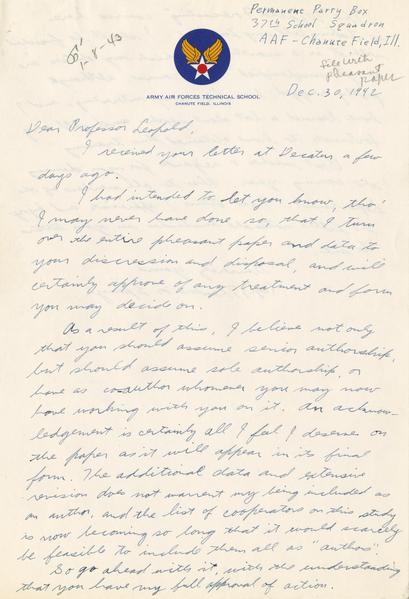 Permanent Party Box
37th School Squadron
AAF - Chanute Field, Ill.
1-8-43
file with
pheasant
paper
Dec. 30, 1942
ARMY AIR FORCES TECHNICAL SCHOOL
CHANUTE FIELD, ILLINOIS
Dear Professor Leopold,
I received your letter at Decatur a few
days ago.
I had intended to let you know, tho'
I may never have done so, that I turn
over the entire pheasant paper and data to
your discression and disposal, and will
certainly approve of any treatment and form
you may decide on.
As a result of this, I believe not only
that you should assume senior authorship,
but should assume sole authorship, or
have as coauthor whomever you may now
have working with you on it. An acknow-
ledgement is certainly all I feel I deserve on
the paper as it will appear in its final
form. The additional data and extensive
revision does not warrent my being included as
an author, and the list of cooperators on this study
is now becoming so long that it would scarcely
be feasible to include them all as "authors".
So go ahead with it, with the understanding
that you have my full approval of action.